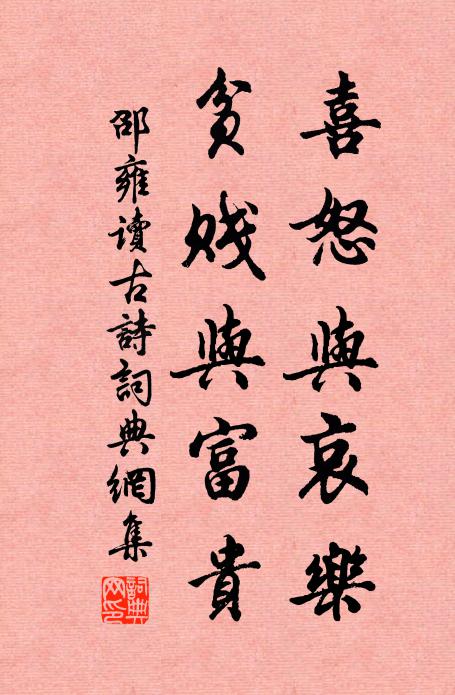 喜怒與哀樂
貧賤與富貴
邵雍讀古詩詞典網集
詞典網印